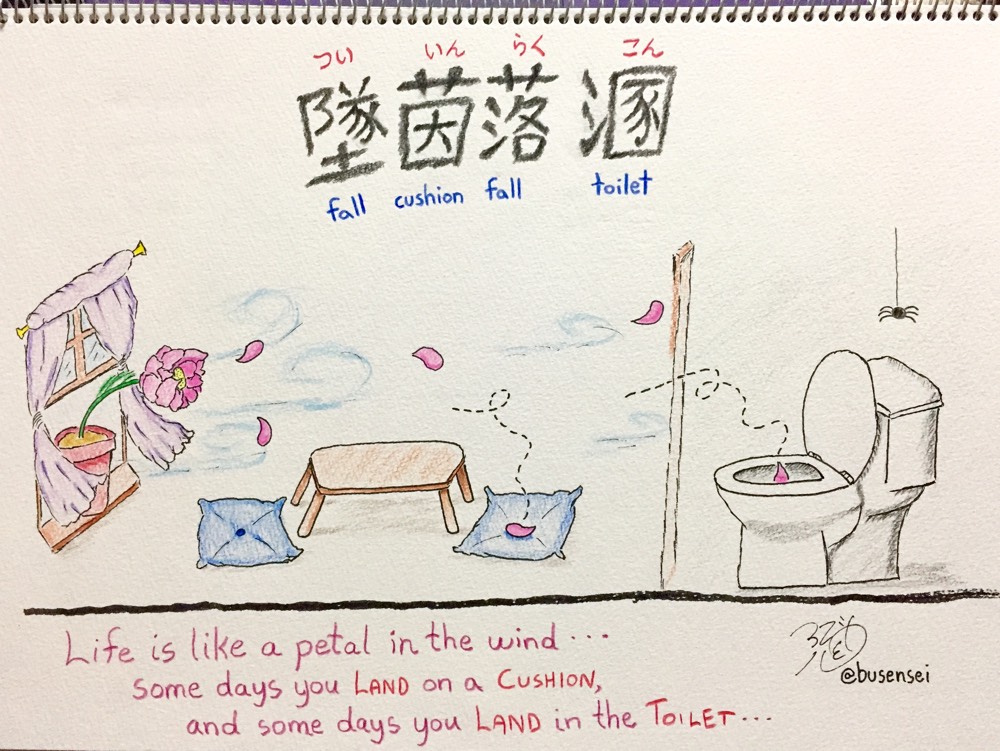 つい いん らく こん
墜茵落溷
fall cushion fall toilet
Life is like a petal in the wind...
some days you LAND on a CUSHION,
and some days you LAND in the TOILET...
@busensei